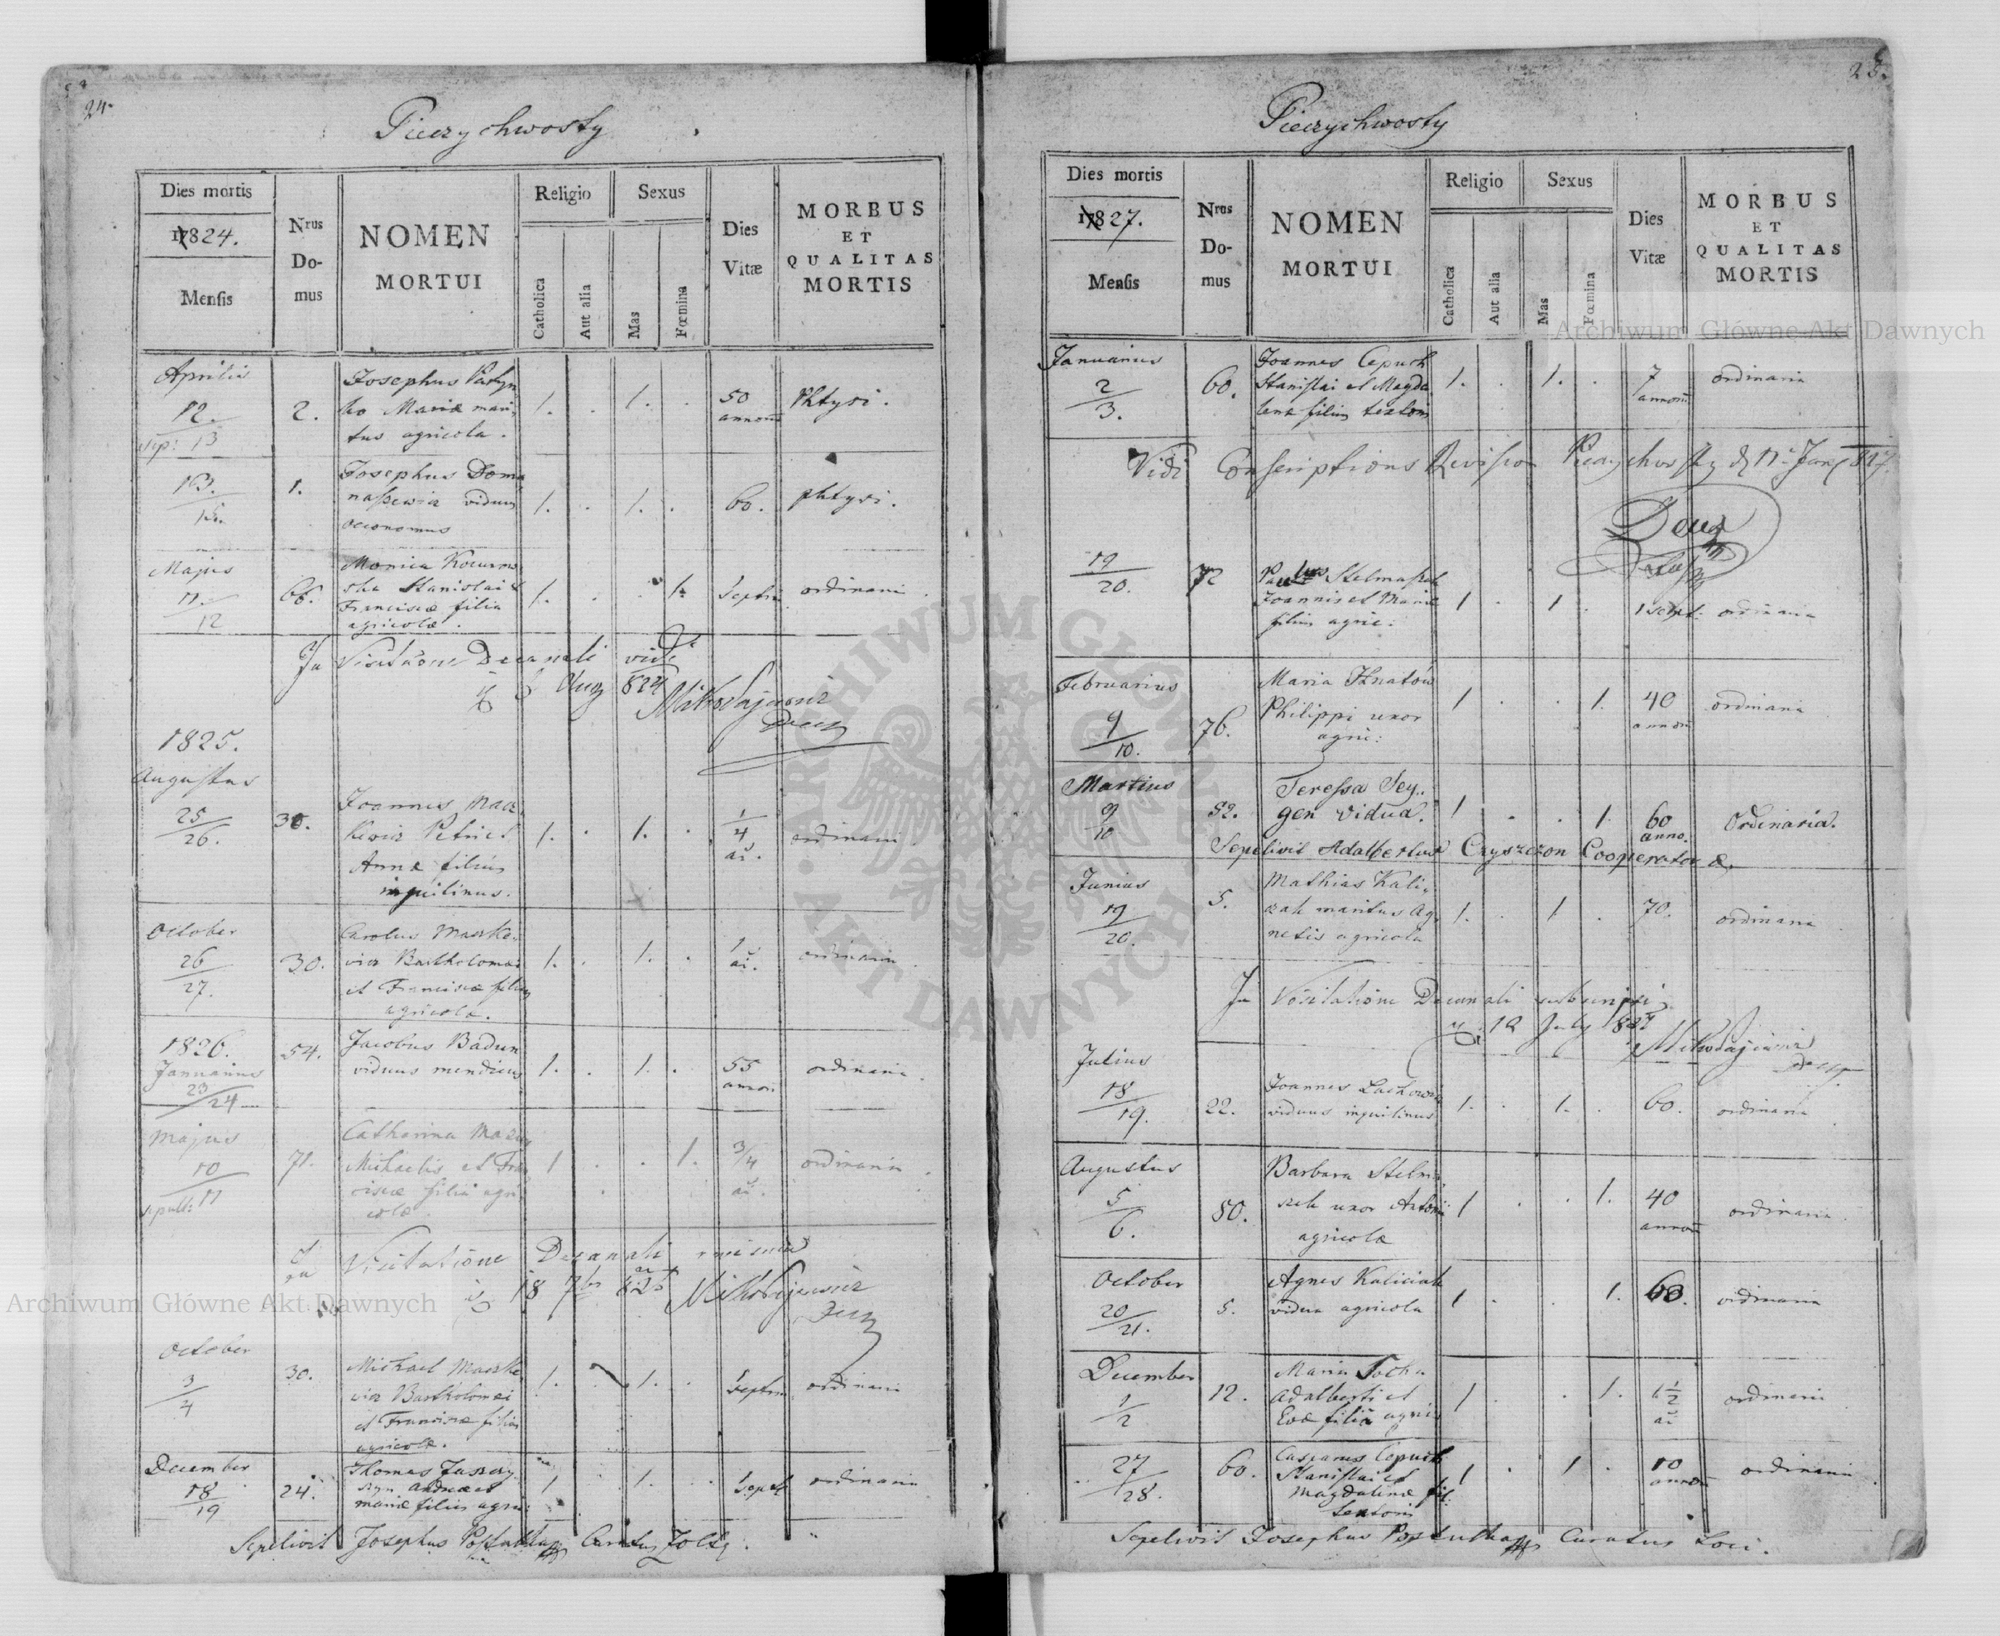 24.
Pieczychwosty
Dies mortis
1824.
Mensis
Nrus Do-mus
NOMEN
MORTUI
Religio
Catholica
Aut alia
Sexus
Mas
Fœmina
Dies
Vitæ
MORBUS
ET
QUALITAS
MORTIS
Aprilis
12.
sep: 13
2.
Josephus
Mariæ mari
tus agricola.
1. . 1. .
50
annorum
Phtysi.
13.
15.
1.
Josephus Doma
naszewicz viduus
oeconomus
1. . 1. .
60.
phtysi.
Majus
11.
12
66.
Monica
Stanislai &
Franciscæ filia
agricolæ.
1. . . 1.
1 septi
ordinari
In Visitatione Decanali vidi
Aug 824 Mikołajewicz
Decan
1825.
Augustus
25
26.
30.
Joannes Macz
kewicz Petri et
Annæ filius
inquilinus.
1. . 1. .
1
4
ai.
ordinari
October
26
27.
30.
Carolus Maczke
wicz Bartholomæi
et Franciscæ filius
agricola.
1. . 1. .
1
ai.
ordinaria
1826.
Januarius
23
24
54.
Jacobus Badun
viduus mendicus
1. . 1. .
55
annor
ordinaria
Majus
10
sepult: 11
71.
Catharina
Michaelis et Fran
ciscæ filia agri
colæ.
1 . . 1.
3/4
ai.
ordinaria
In Visitatione Decanali
18 7br 826 Mikołajewicz
Decan
October
3
4
30.
Michael Maczke
wicz Bartholomæi
et Franciscæ filius
agricolæ.
1. . 1. .
1 septim
ordinari
December
18
19
24.
Thomas
Andreæ et
Mariæ filius agri:
1 . 1. .
1 sept
ordinaria
Sepelivit Josephus Curatus
25.
Pieczychwosty
Dies mortis
1827.
Mensis
Nrus Do-mus
NOMEN
MORTUI
Religio
Catholica
Aut alia
Sexus
Mas
Fœmina
Dies
Vitæ
MORBUS
ET
QUALITAS
MORTIS
Januarius
2
3.
60.
Joannes Capuch
Stanislai et Magda
lenæ filius textoris
1. . 1. .
7
annorum
ordinaria
Vidi Conscriptions Revision Pieczychwosty
19
20.
72
Paulus Stelmaszek
Joannis et Mariæ
filius agric:
1 . 1 .
1 sept:
ordinaria
Februarius
9
10.
76.
Maria Ihnatow
Philippi uxor
agric:
1 . . 1.
40
annorum
ordinaria
Martius
9
10
52.
Teressa Sey..
gen vidua.
1 . . 1.
60
anno.
Ordinaria.
Sepelivit Adalbertus Czyszczon Cooperator
Junius
19
20.
5.
Mathias Kali
czak maritus Ag
netis agricola
1. . 1 .
70.
ordinaria
In Visitatione Decanali subscripsi
12 July 827
Mikołajewicz
Decan
Julius
18
19.
22.
Joannes Lachowicz
viduus inquilinus
1. . 1. .
60.
ordinaria
Augustus
5
6.
50.
Barbara Stelma
szek uxor Antonii
agricolæ
1 . . 1.
40
annorum
ordinaria
October
20
21.
5.
Agnes Kaliciak
vidua agricola
1 . . 1.
60.
ordinaria
December
1
2
12.
Maria
Adalberti et
Evæ filia agric:
1 . . 1.
1 1/2
ai
ordinaria
27
28.
60.
Casparus Capuch
Stanislai et
Magdalenæ fil:
textoris
1 . 1 .
10
annorum
ordinaria
Sepelivit Josephus Curatus Loci.
Archiwum Główne Akt Dawnych
Archiwum Główne Akt Dawnych
ARCHIWUM GŁÓWNE AKT DAWNYCH